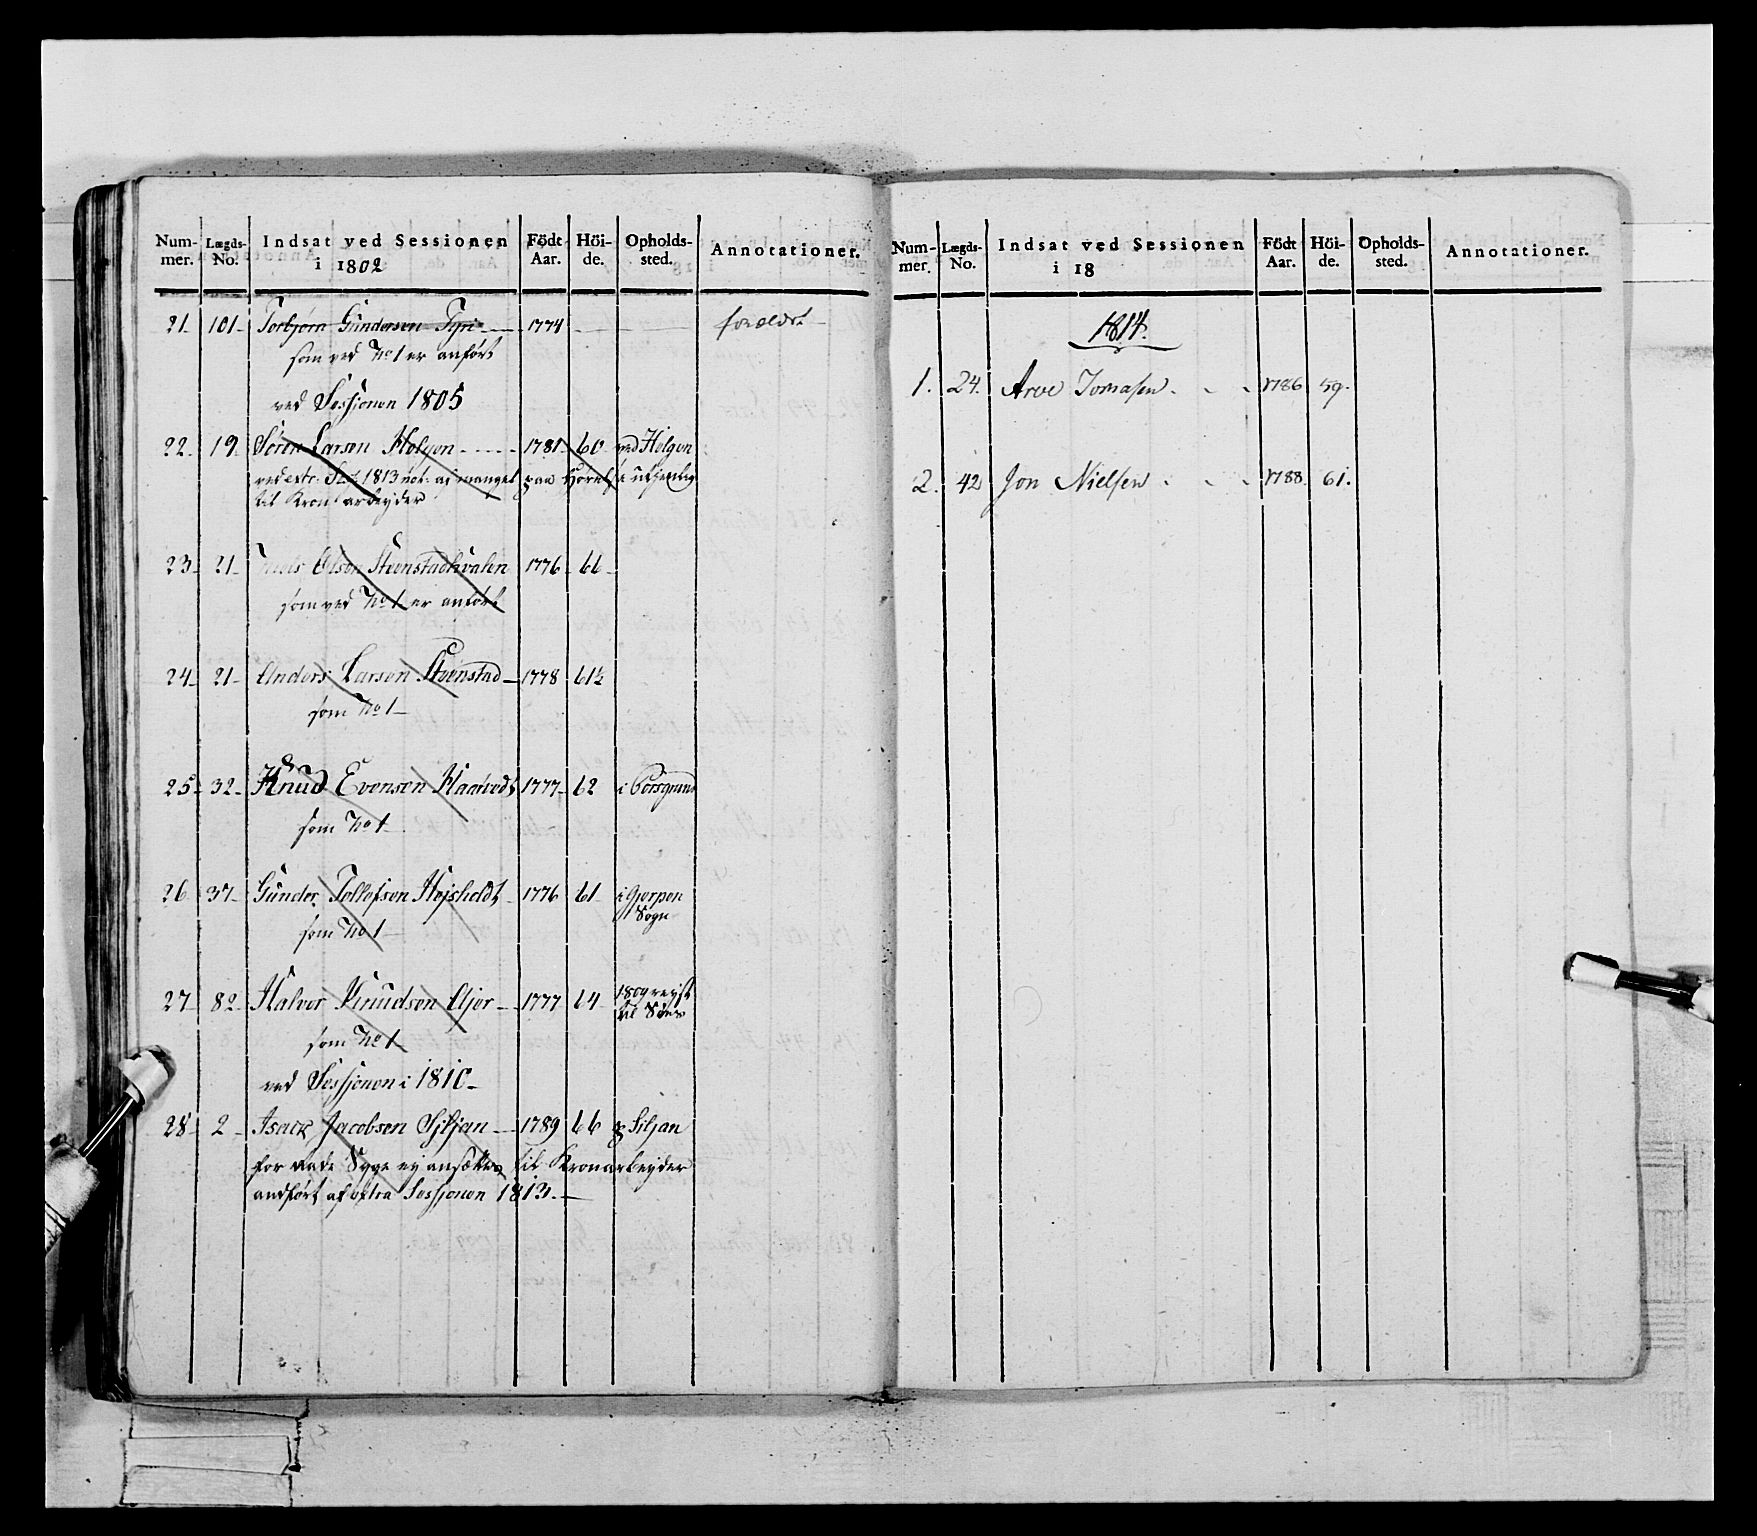 Num-mer. Lægds-No. Indsat ved Sessionen i 1802 Födt Aar. Höi-de. Opholds-sted. Annotationer.
21 101 Torbjørn Gundersen Tyri 1774 forældt
som ved No 1 er anført
ved Sessionen 1805
22 19 Søren Larsen Holgen 1781 60 ved Holgen
ved extr. 1813 af mangel paa Hørelse
til Kron arbeyder
23 21 Niels Olsen Steenstadhvalen 1776 66
som ved No 1 er anført
24 21 Anders Larsen Steenstad 1778 61½
som No 1
25 32 Knud Evensen Haatvedt 1777 62 i Porsgrund
som No 1
26 37 Gunder Tollefsen Hejsholdt 1776 61 i Gjerpen Sogn
som No 1
27 82 Halvor Knudsen 1777 64 1809 reyst til Søes
som No 1
ved Sessionen i 1810
28 2 Isack Jacobsen Siljan 1789 66 p Siljan
for Syge ey ansættes til Kronarbeyder
andført af extra Sessionen 1813.
Num-mer. Lægds-No. Indsat ved Sessionen i 18 Födt Aar. Höi-de. Opholds-sted. Annotationer.
1814.
1. 24. Arve Tomasen 1786 59.
2. 42 Jon Nielsen 1788. 61.